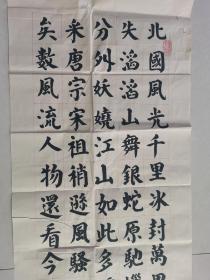 北國風光千里冰封萬里
失滔滔山舞銀蛇原馳
分外妖嬈江山如此多
采唐宗宋祖稍遜風騷
矣數風流人物還看今